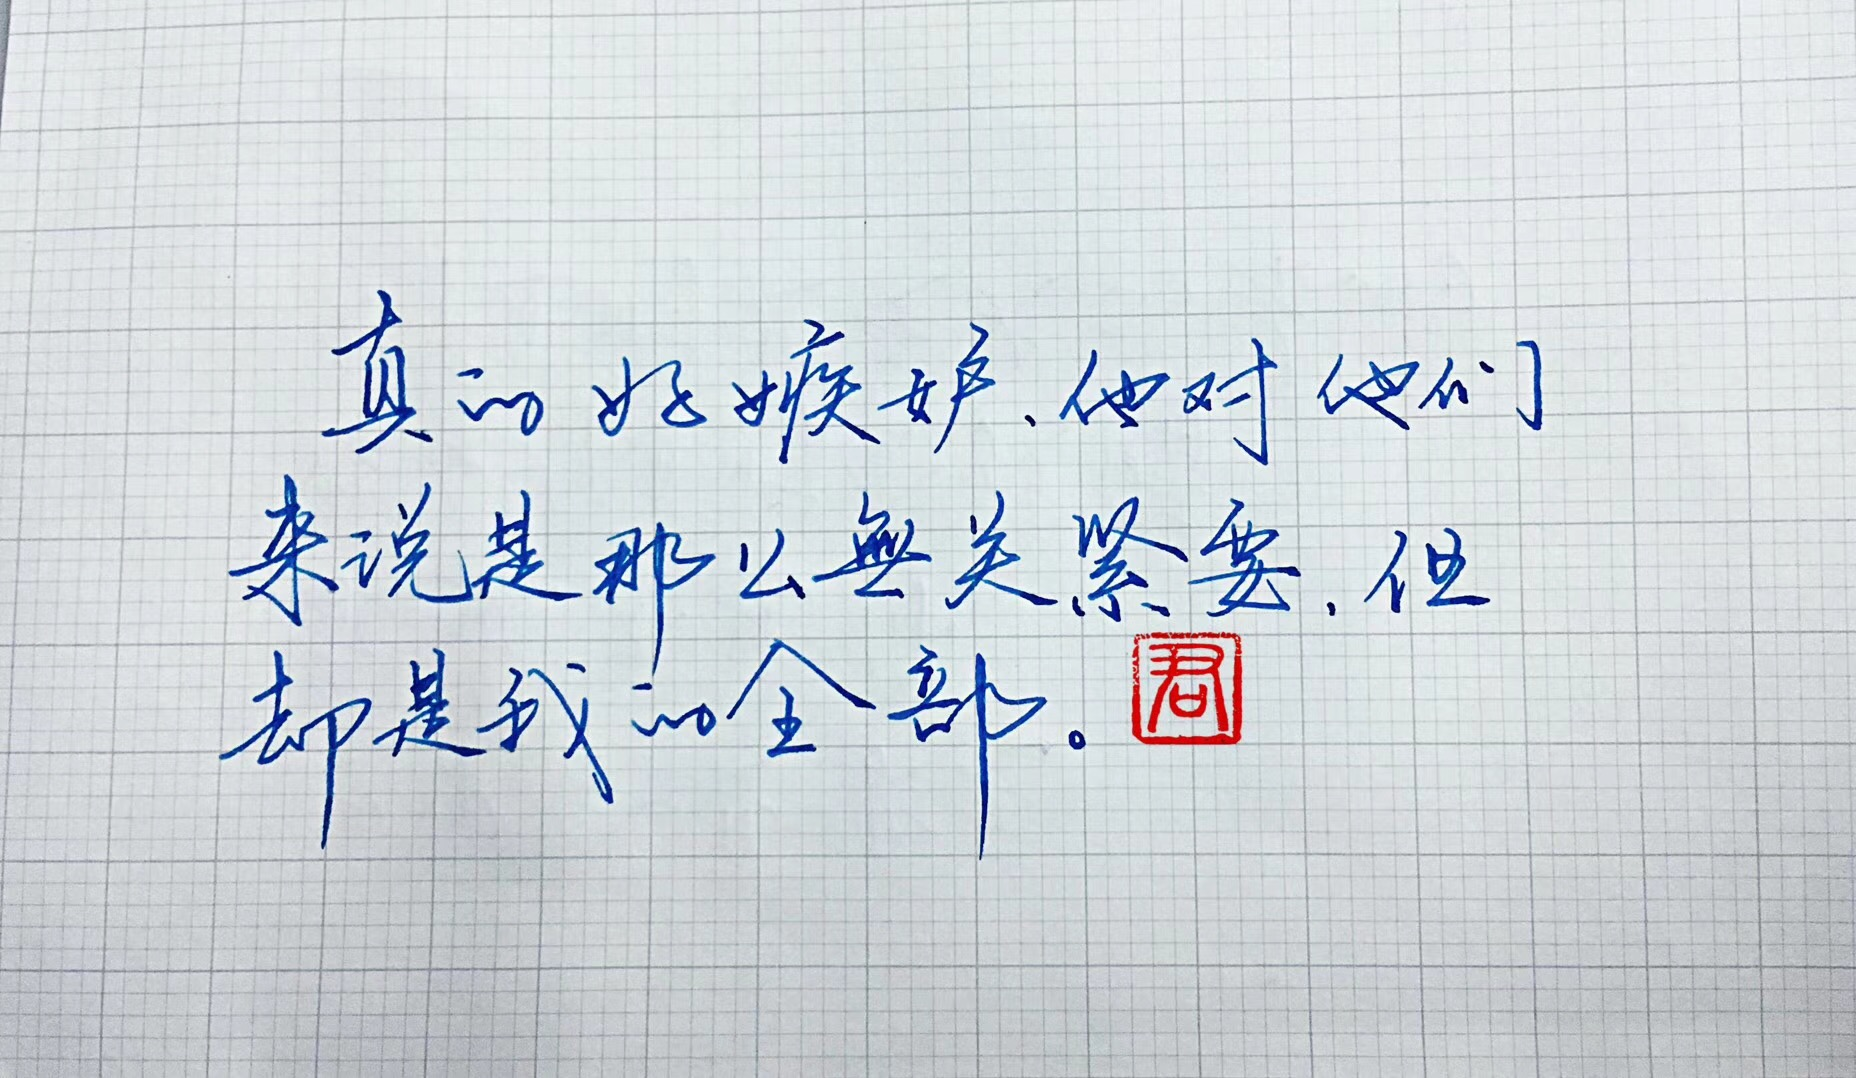 真的好嫉妒，他对他们
来说是那么無关紧要，但
却是我的全部。
君